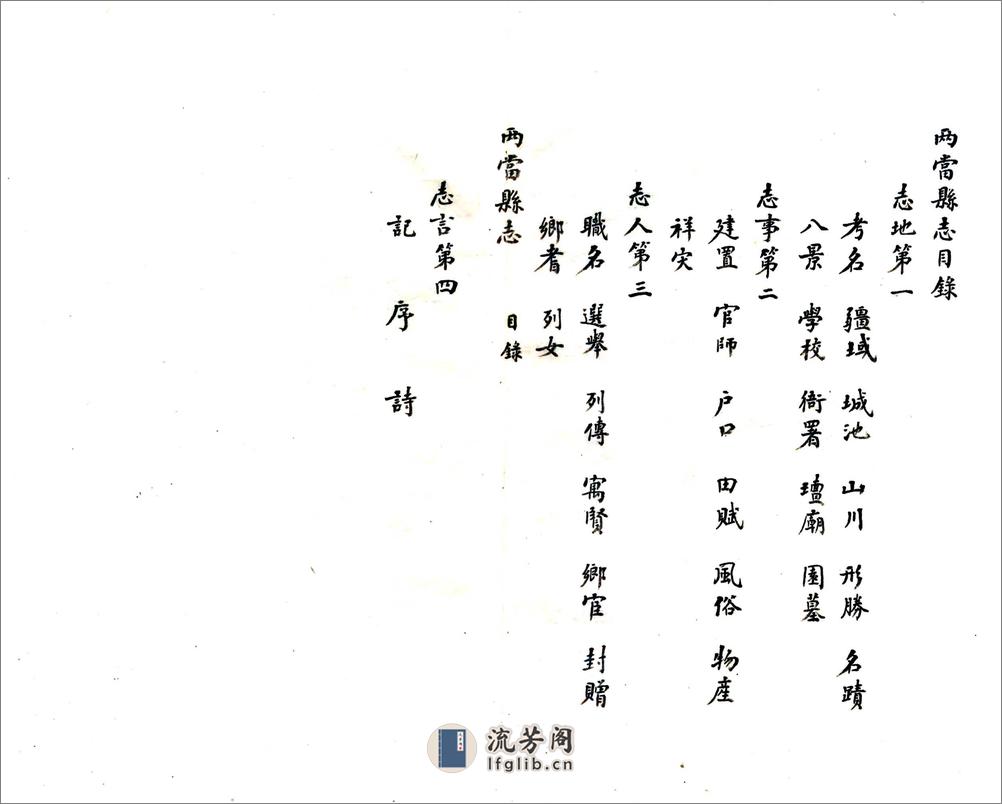 两當縣志目錄
志地第一
考名 疆域 城池 山川 形勝 名蹟
八景 學校 衙署 壇廟 園墓
志事第二
建置 官師 户口 田賦 風俗 物産
祥灾
志人第三
職名 選舉 列傳 寓賢 鄉宦 封贈
鄉耆 列女
两當縣志 目錄
志言第四
記 序 詩
流芳阁
lfglib.cn